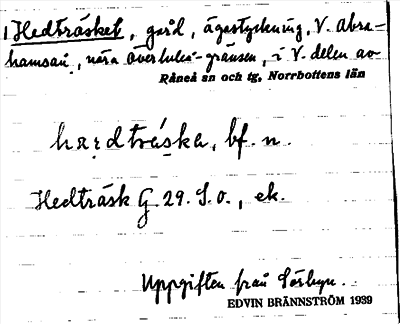 1 Hedträsket, gård, ägostyckning, V. Abra-
hamsan, nära Överluleå-gränsen, i V. delen av
Råneå sn och tg, Norrbottens län
hardtráska, bf. n.
Hedträsk G. 29. S.o., ek.
Uppgiften från Sörbyn.
EDVIN BRÄNNSTRÖM 1939